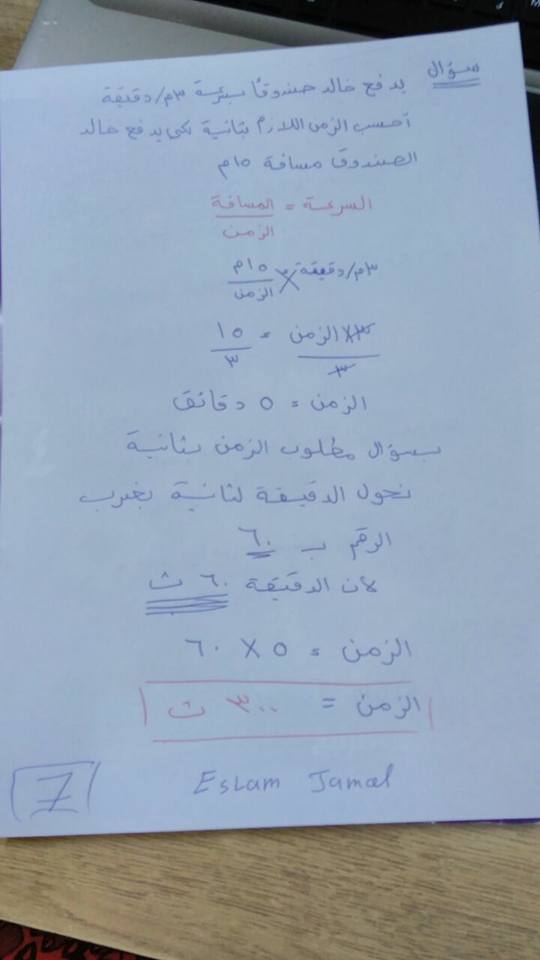 سؤال يدفع خالد صندوقًا بسرعة ٣م/دقيقة
أحسب الزمن اللازم بثانية لكي يدفع خالد
الصندوق مسافة ١٥م
السرعة = المسافة
الزمن
٣م/دقيقة ١٥م
الزمن
٣×الزمن = ١٥
٣ ٣
الزمن = ٥ دقائق
بسؤال مطلوب الزمن بثانية
نحول الدقيقة لثانية بضرب
الرقم ب ٦٠
لان الدقيقة ٦٠ ث
الزمن = ٥ × ٦٠
الزمن = ٣٠٠ ث
Eslam Jamal
7